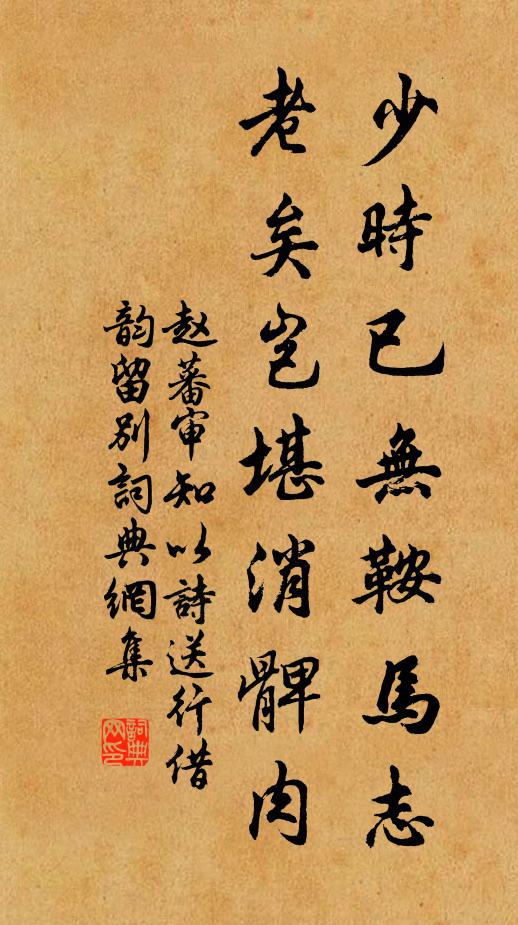 少時已無鞍馬志
老矣豈堪消髀肉
赵蕃审知以詩送行借
韵留别詞典網集
詞典
网印